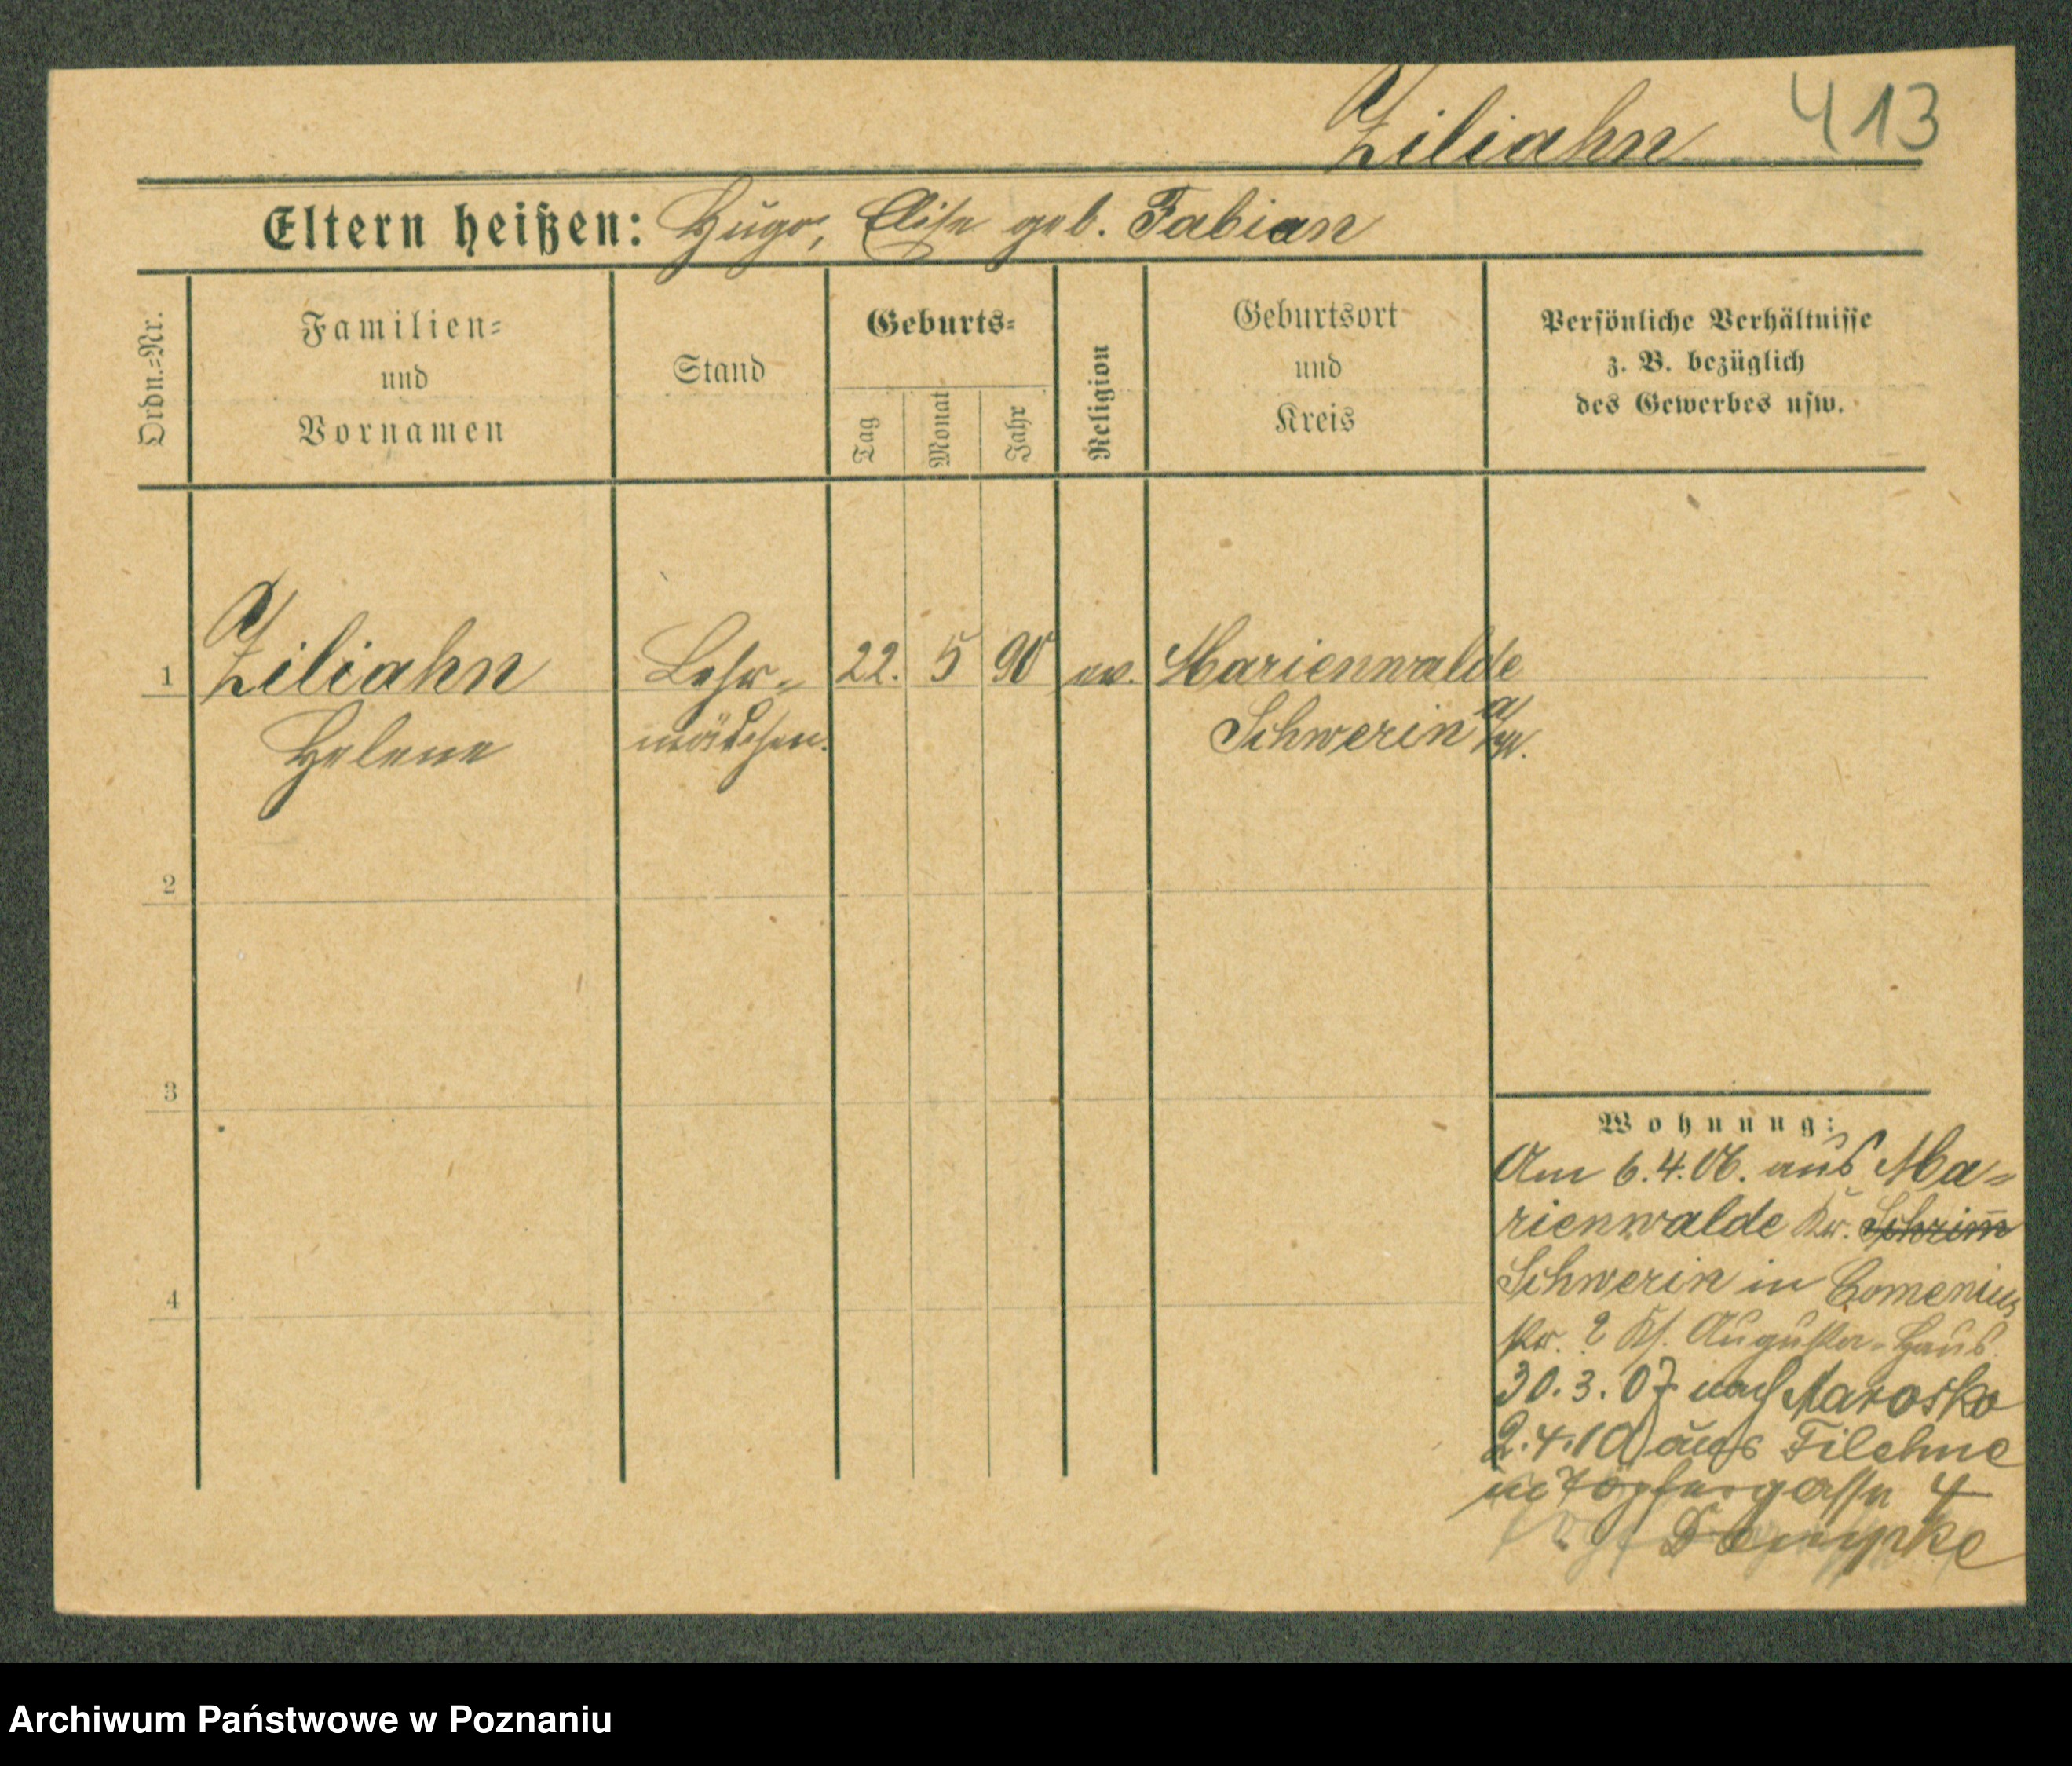 413
Ziliahn
Eltern heißen: Hugo, Elise geb. Fabian
Ordn.=Nr.
Familien=
und
Vornamen
Stand
Geburts=
Tag
Monat
Jahr
Religion
Geburtsort
und
Kreis
Persönliche Verhältnisse
z. B. bezüglich
des Gewerbes usw.
1
Ziliahn
Helene
Lehr=
mädchen.
22. 5 90
ev.
Marienwalde
Schwerin a/W.
2
3
4
Wohnung:
Am 6.4.06. aus Ma=
rienwalde Kr. Schrim̅
Schwerin in Comenius
str. 2 Augusta=Haus.
30.3.07 nach
2.4.10 aus Filehne
in Töpfergasse 4
Archiwum Państwowe w Poznaniu